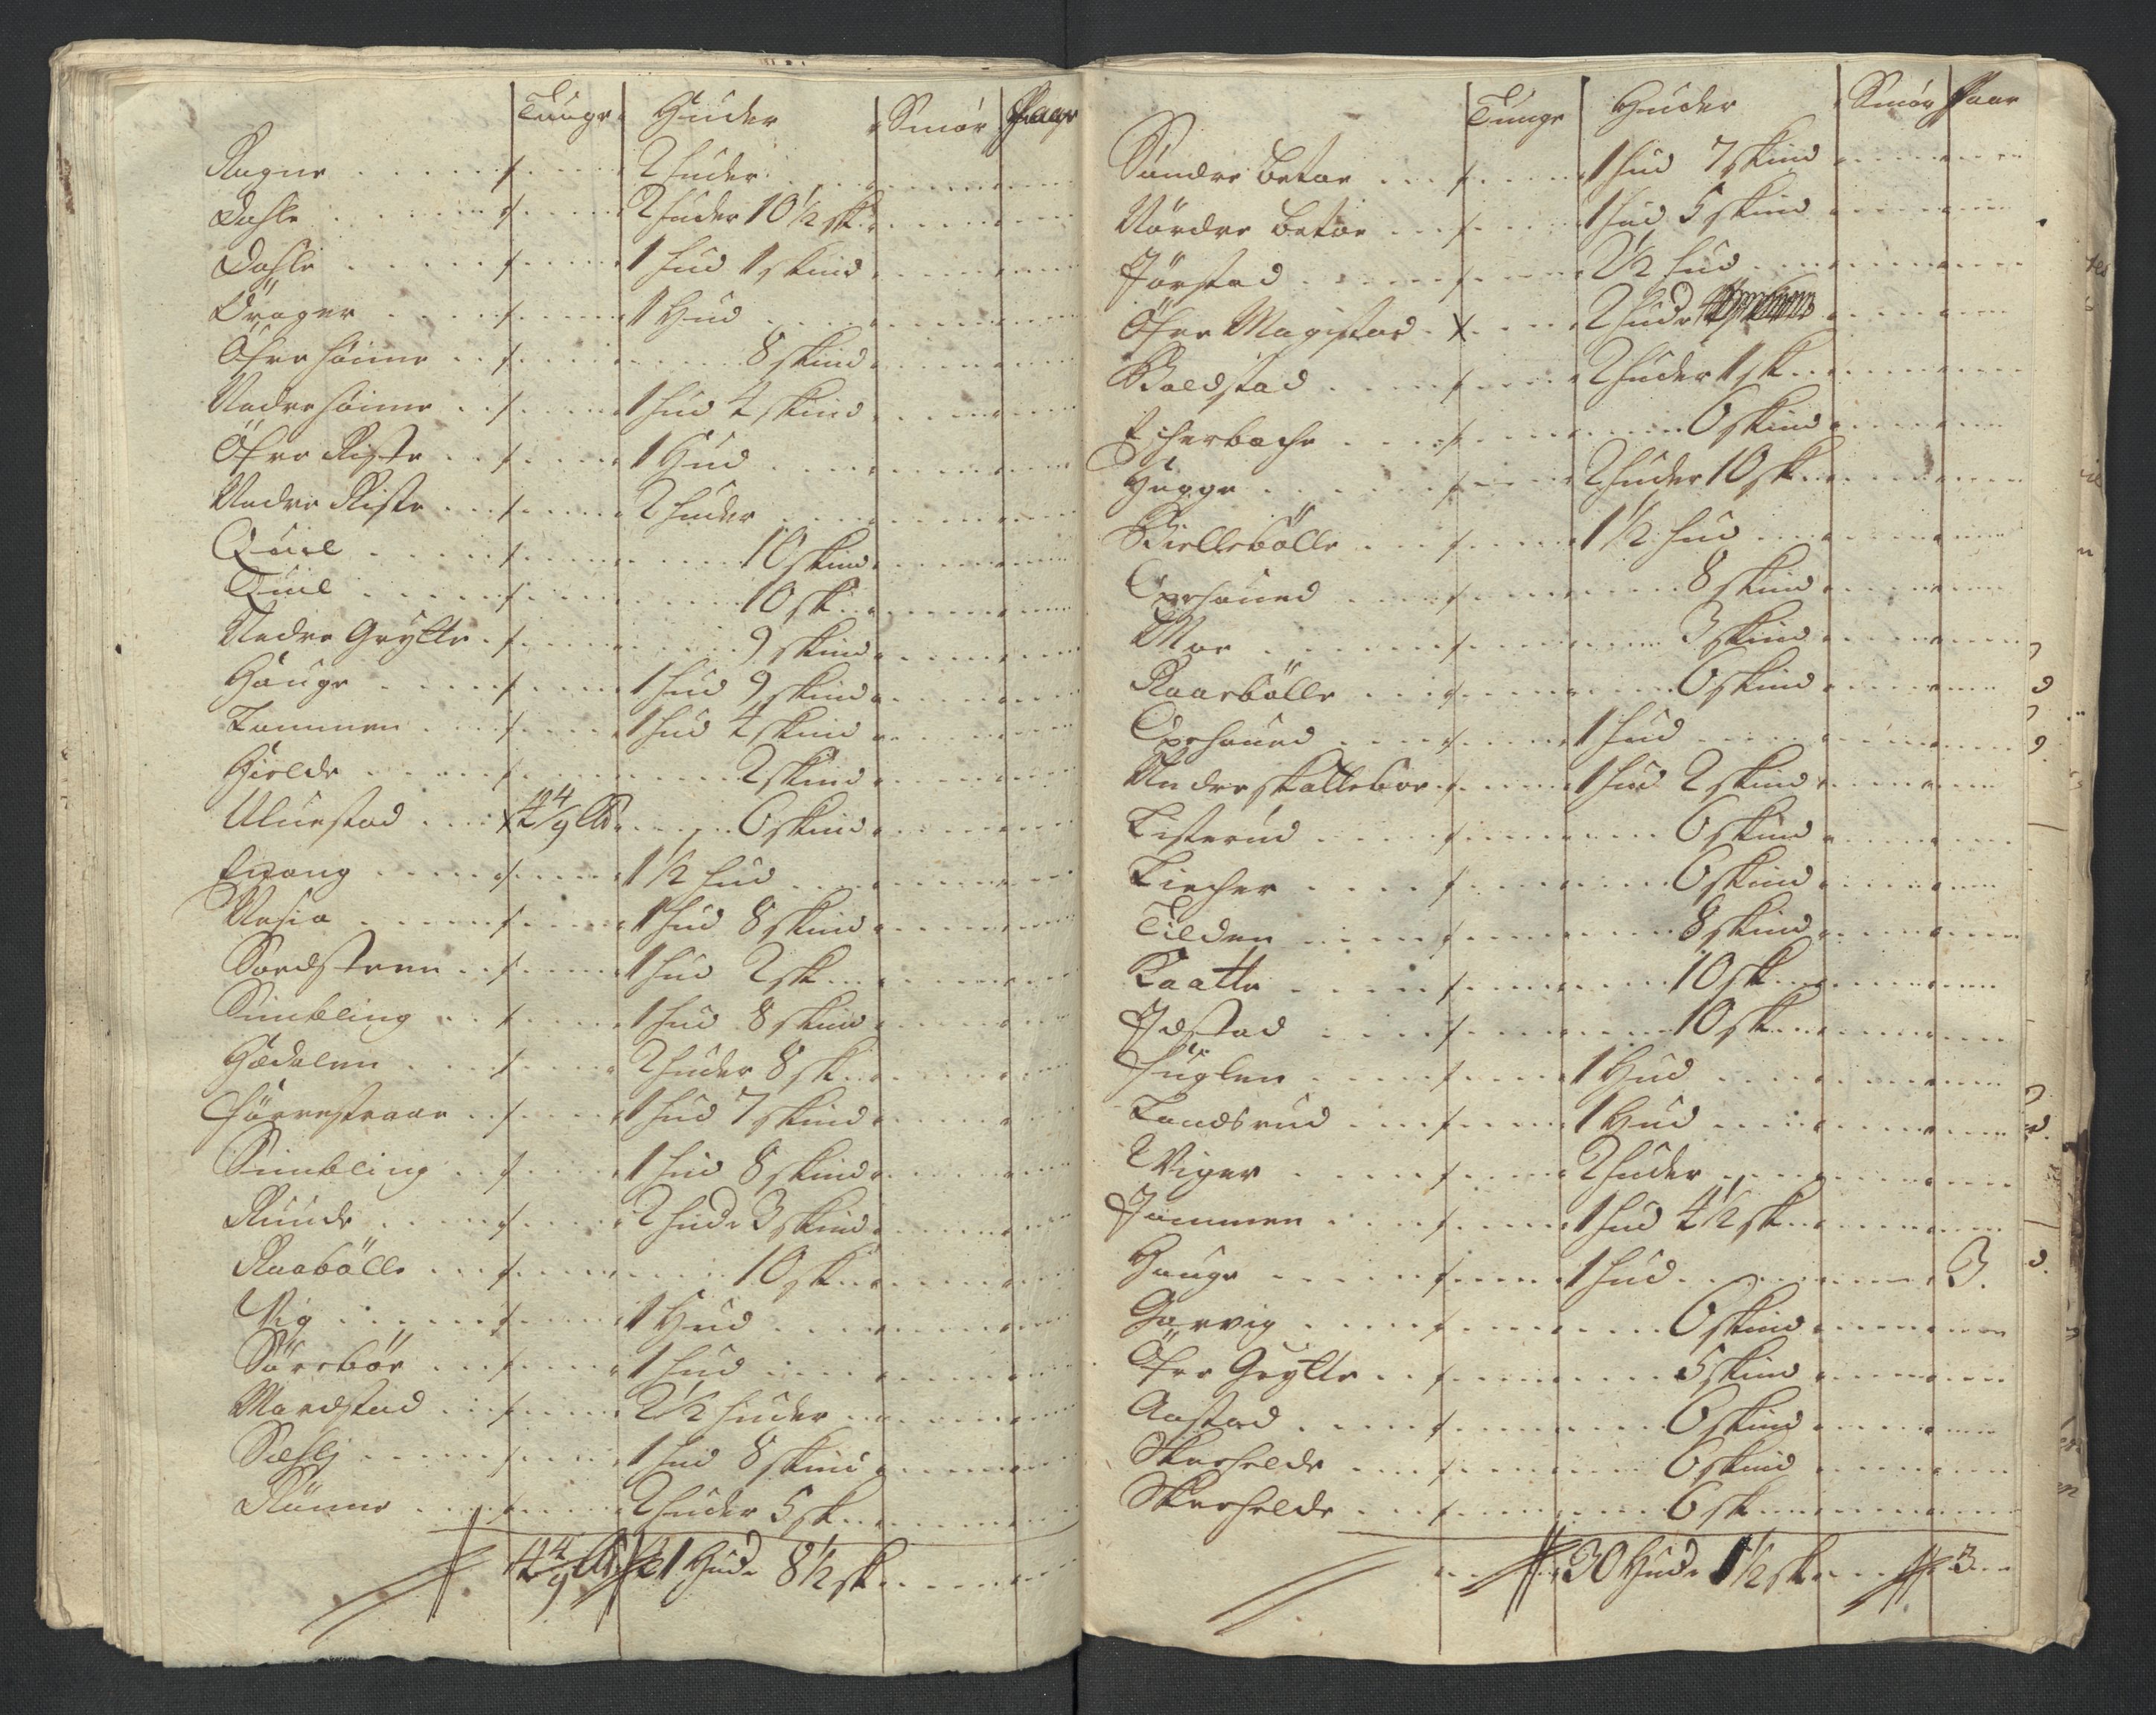 Tunge Huder Smør Faar
Rogne 2 huder
Dahle 2 huder 10 1/2 sk.
Dahle 1 hud 1 skind
Drøger 1 Hud
Öfre höime 8 skind
Nedre höime 1 hud 4 skind
Öfre Riste 1 Hud
Nedre Riste 2 huder
Quil 10 skind
Quil 10 sk.
Nedre Grytte 9 skind
Houge 1 hud 9 skind
Tommen 1 hud 4 skind
Gielde 2 skind
Ulnestad 4 4/9 6 skind
Enang 1 1/2 hud
Nesja 1 hud 8 skind
Sordsteen 1 hud 2 sk.
Simbling 1 hud 8 skind
Hædalen 2 huder 8 sk.
Förrestraae 1 hud 7 skind
Simbling 1 hud 8 skind
Runde 2 hud. 3 skind
Raabölle 10 sk.
Vig 1 Hud
Söreböe 1 hud
Mardstad 2 1/2 huder
Sælsj 1 hud 8 skind
Rönne 2 huder 5 sk.
4 4/9 41 Hud. 8 1/2 sk.
Tunge Huder Smør Faar
Söndre Betoe 1 hud 7 skind
Nördre Betoe 1 hud 5 skind
Jörstad 2 1/2 hud
Öfre Magistad 2 hude
Boldstad 2 huder 1 sk.
6 skind
Hegge 2 huder 10 sk.
Biellebölle 1 1/2 hud
Oxehoued 8 skind
Moe 3 skind
Raaebölle 6 skind
Oxehoued 1 hud
Nedre skatteboe 1 hud 2 skind
Listerud 6 skind
Kircher 6 skind
Tilden 8 skind
Kaatte 10 sk.
Idstad 10 sk.
Fuglen 1 Hud
Tandsrud 1 Hud
Wiger 2 huder
Jommen 1 hud 4 1/2 sk.
Houge 1 hud 3.
Garvig 6 skind
Öfre Grytte 5 skind
Aastad 6 skind
Skerfelde 6 skind
Skerfelde 6 sk.
30 Hud. 1 1/2 sk. 3